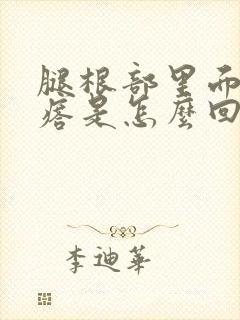 腿根部里而
痞是怎麼回
李迪華